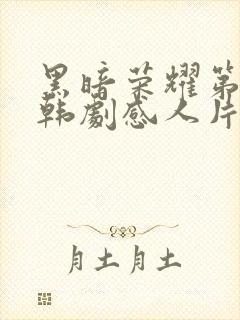 黑暗荣耀第
韩剧感人片
月土月土